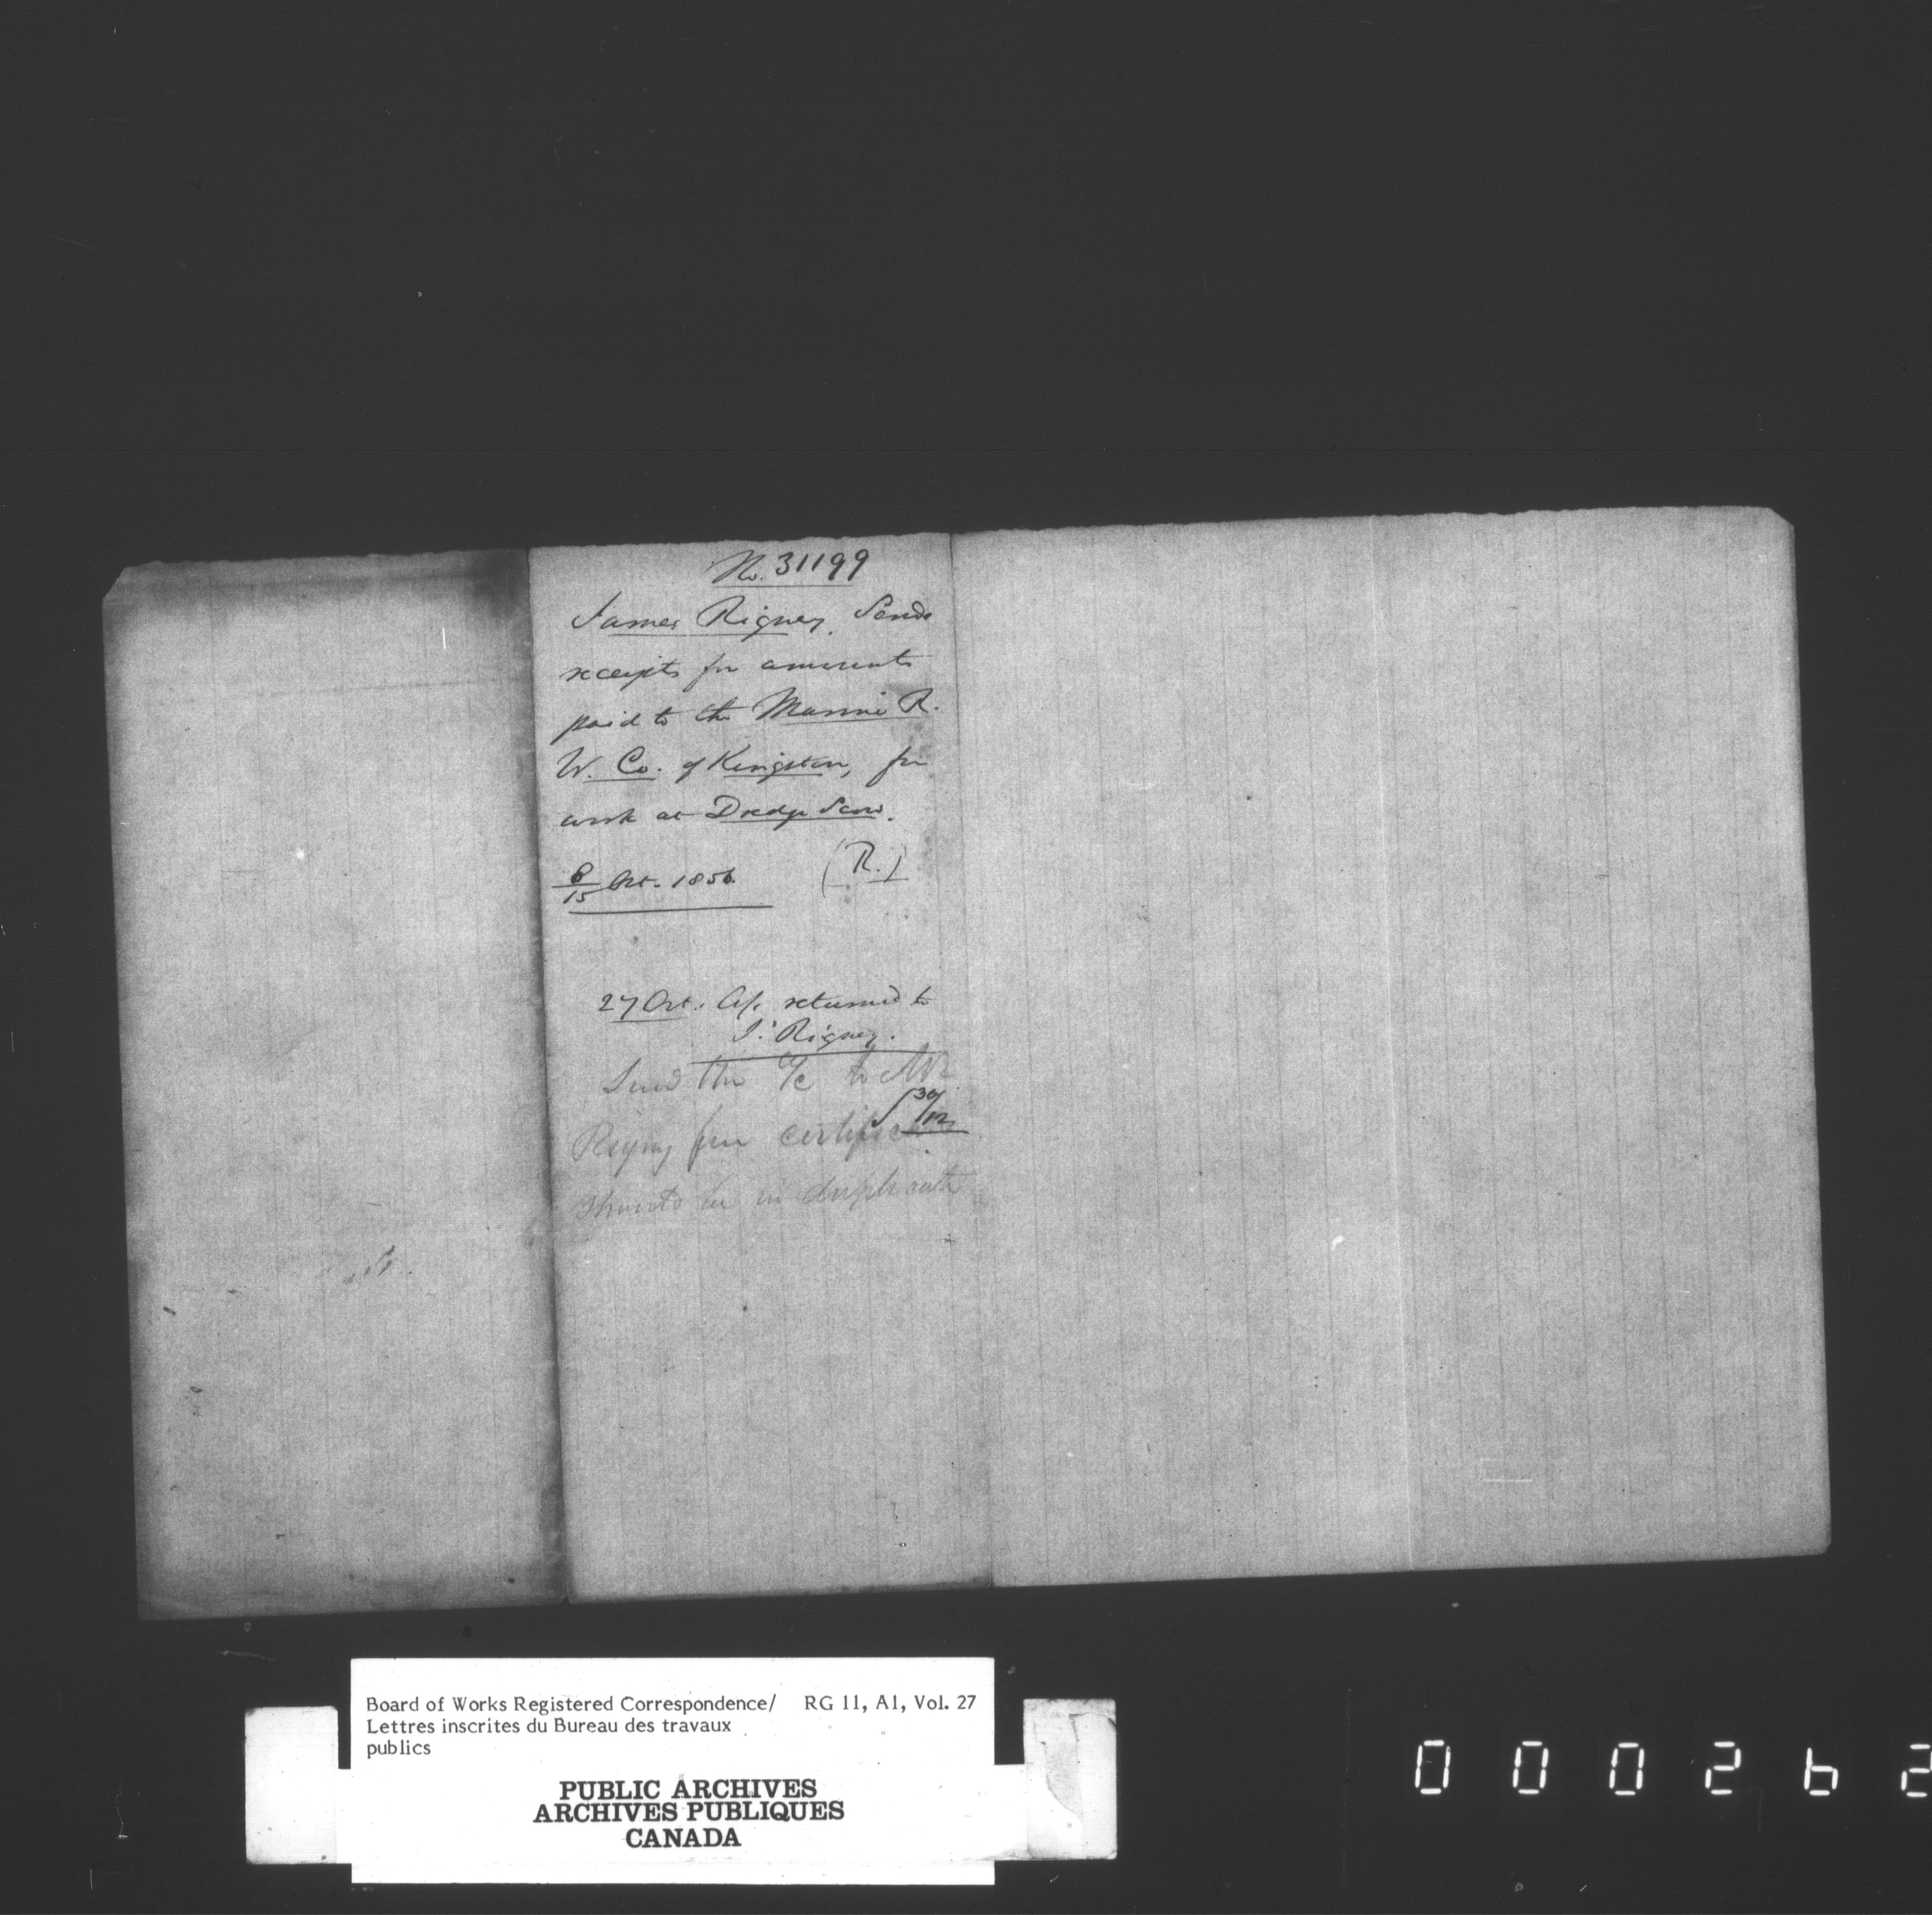 No. 31199
James Rigney. Sends
receipts for amounts
paid to the Marine R.
W. Co. of Kingston, for
work at Dredge Scow.
6/15 Oct. 1856. (R.)
27 Oct. a/c returned to
J. Rigney.
Send the a/c to Mr
30/12
Rigny for certificate
should be in duplicate
Board of Works Registered Correspondence/ RG 11, A1, Vol. 27
Lettres inscrites du Bureau des travaux
publics
PUBLIC ARCHIVES
ARCHIVES PUBLIQUES
CANADA
000262